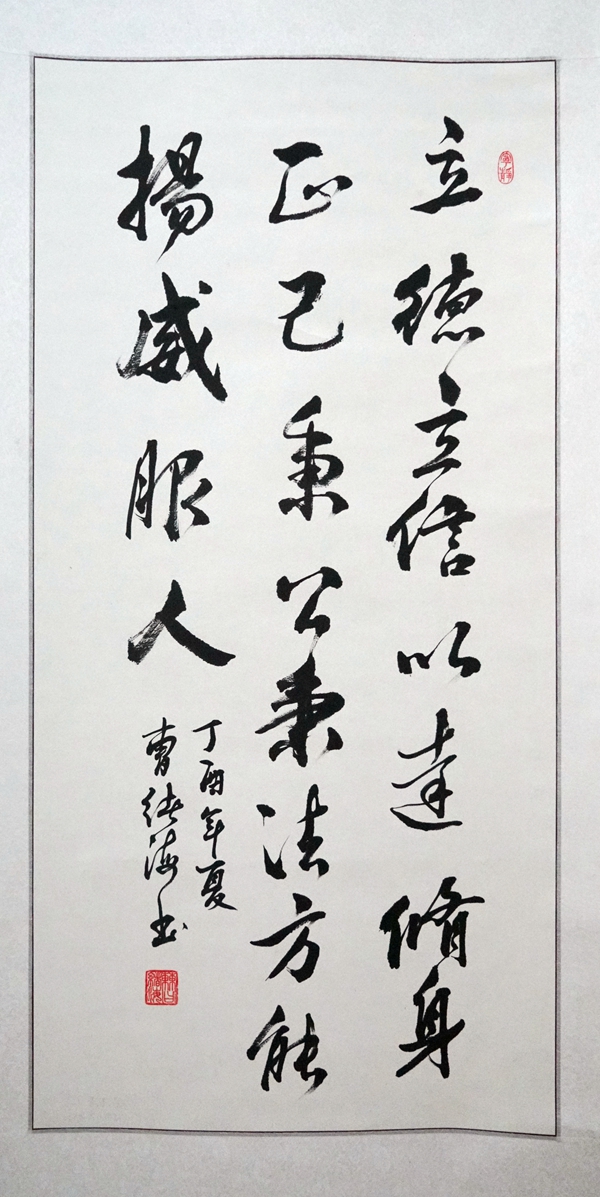 立德立信以達脩身
正己秉公秉法方能
揚威服人
丁酉年夏
曹海书